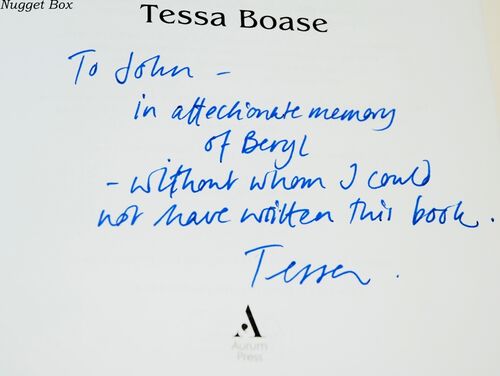 Nugget Box
Tessa Boase
To John –
in affectionate memory
of Beryl
- without whom I could
not have written this book.
Tessa.
Aurum
Press